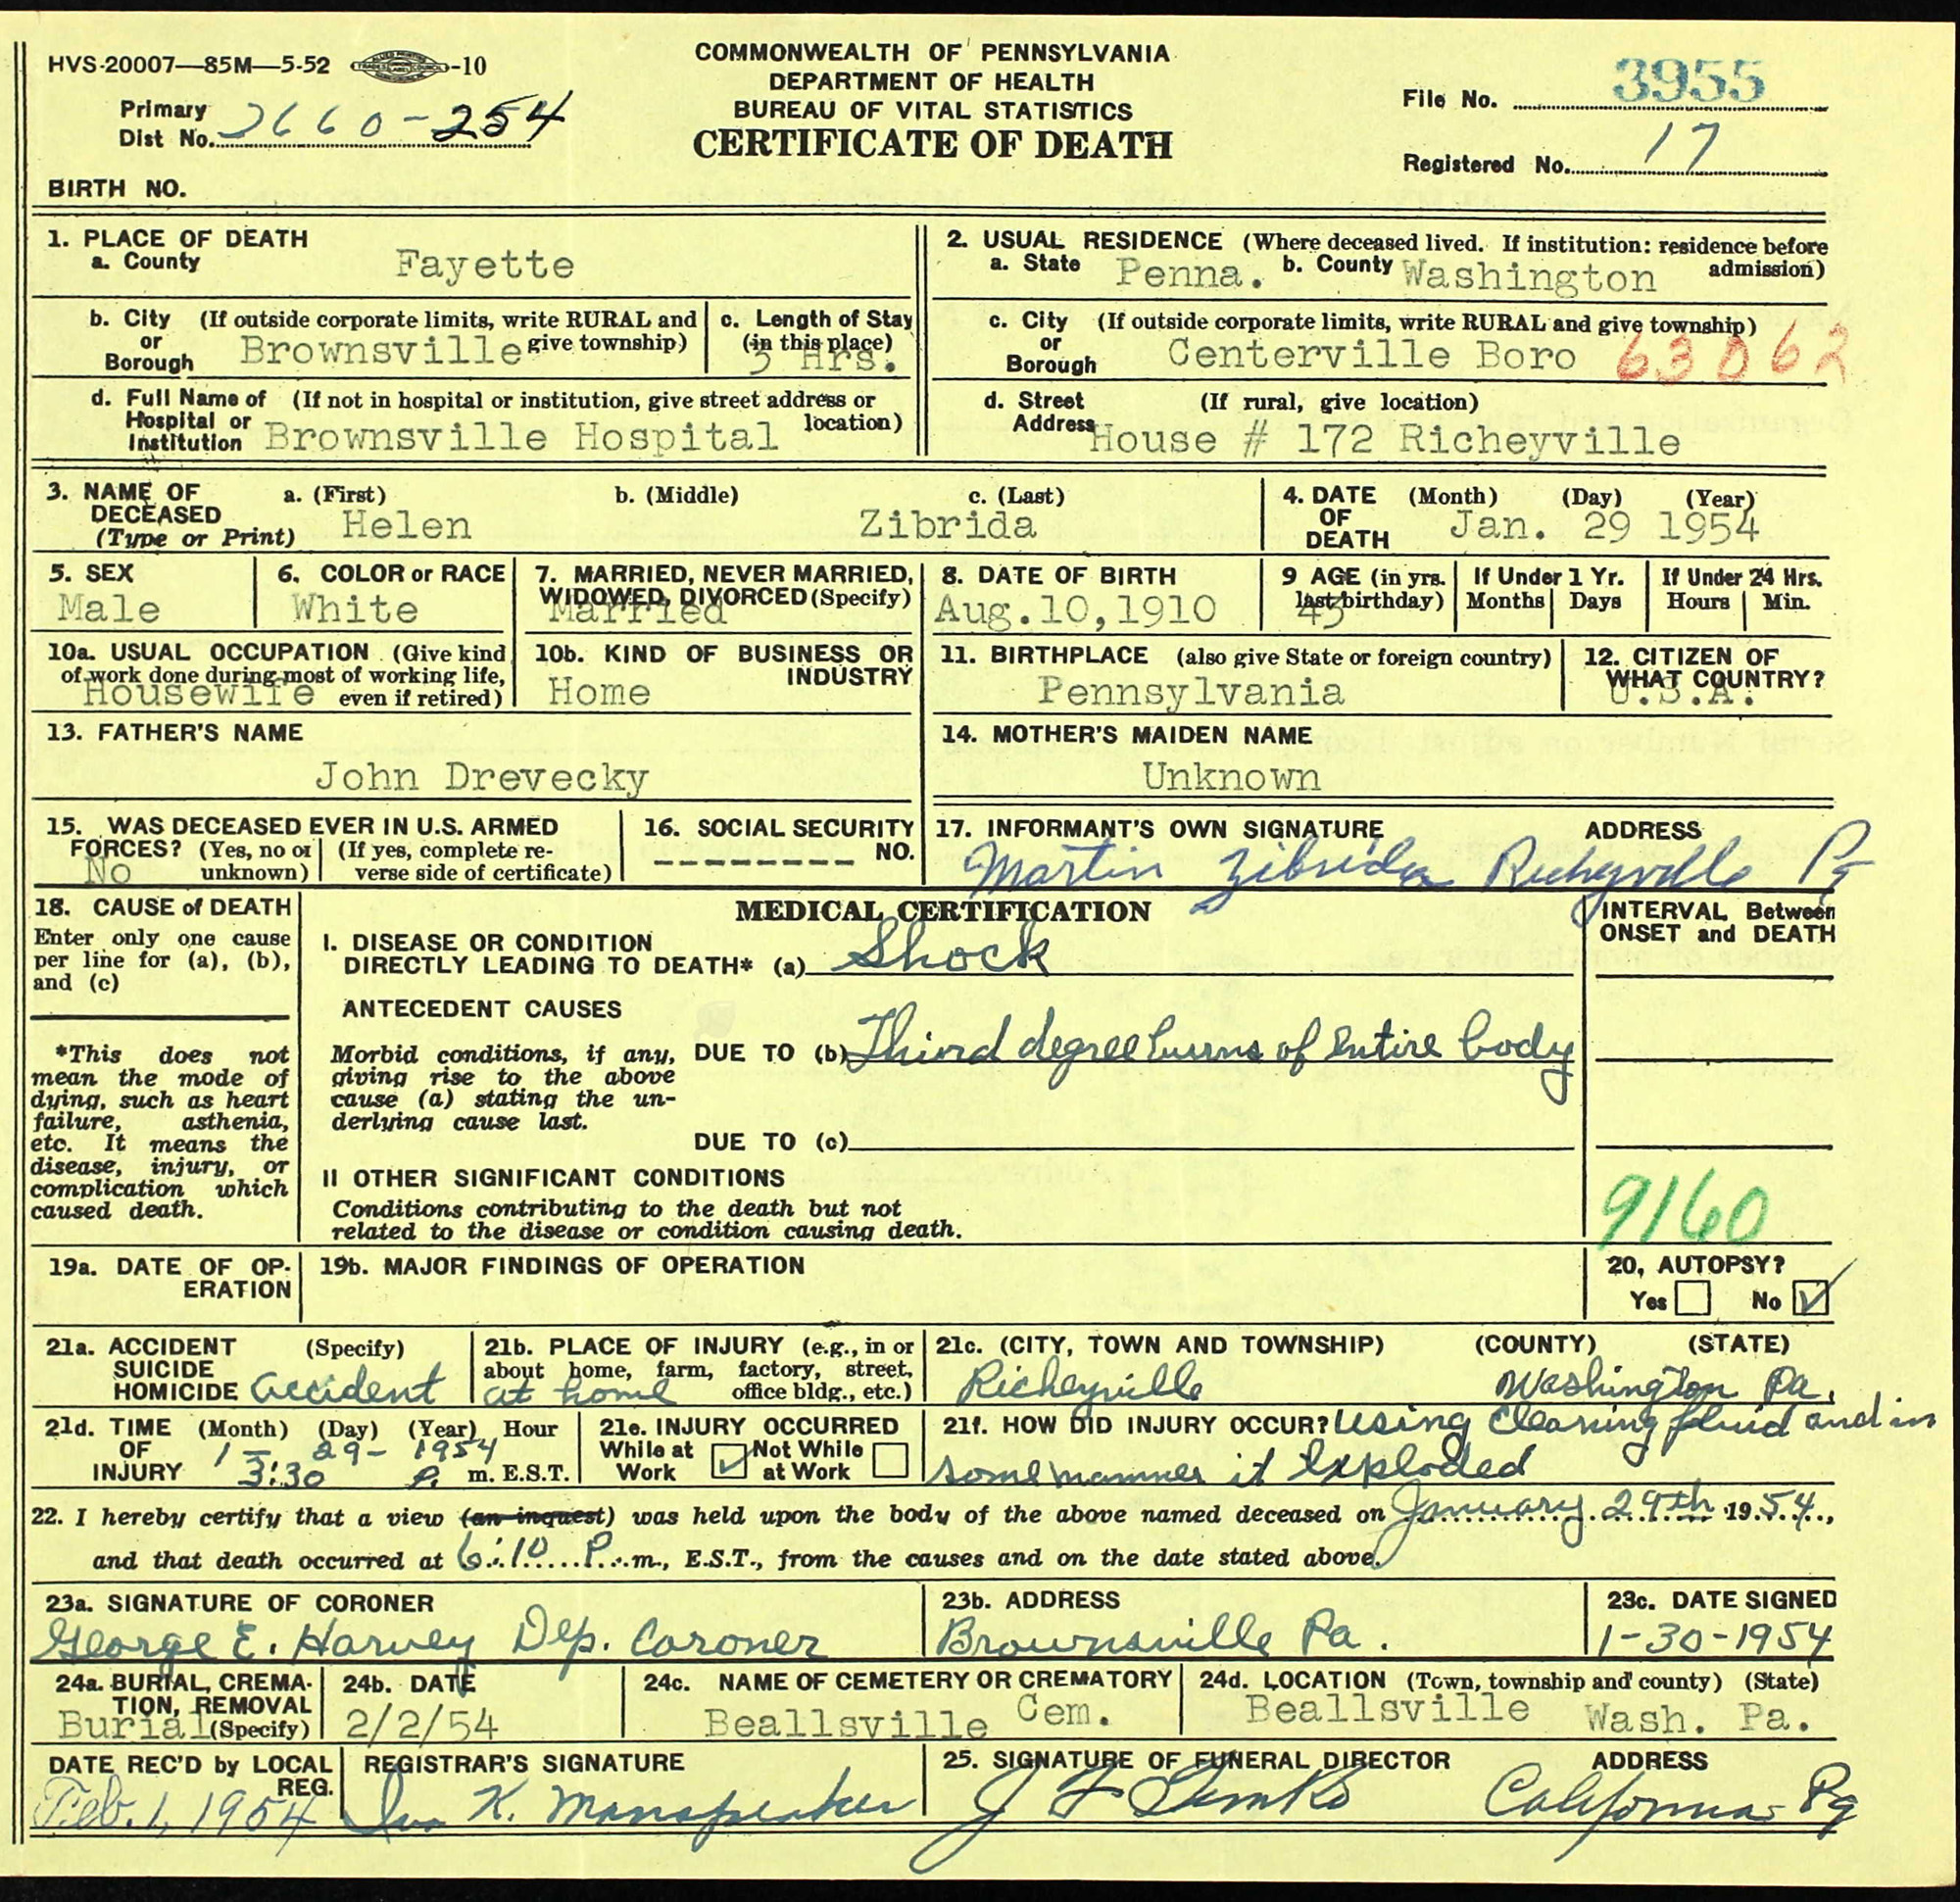 HVS-20007—85M—5-52 -10
COMMONWEALTH OF PENNSYLVANIA
DEPARTMENT OF HEALTH
BUREAU OF VITAL STATISTICS
CERTIFICATE OF DEATH
Primary
Dist No. 2660-254
File No. 3955
Registered No. 17
BIRTH NO.
1. PLACE OF DEATH
a. County Fayette
2. USUAL RESIDENCE (Where deceased lived. If institution: residence before admission)
a. State Penna. b. County Washington
b. City or Borough (If outside corporate limits, write RURAL and give township) Brownsville
c. Length of Stay (in this place) 3 Hrs.
c. City or Borough (If outside corporate limits, write RURAL and give township) Centerville Boro 63062
d. Full Name of Hospital or Institution (If not in hospital or institution, give street address or location) Brownsville Hospital
d. Street Address (If rural, give location) House # 172 Richeyville
3. NAME OF DECEASED (Type or Print) a. (First) Helen b. (Middle) c. (Last) Zibrida
4. DATE OF DEATH (Month) (Day) (Year) Jan. 29 1954
5. SEX Male
6. COLOR or RACE White
7. MARRIED, NEVER MARRIED, WIDOWED, DIVORCED (Specify) Married
8. DATE OF BIRTH Aug.10,1910
9 AGE (in yrs. last birthday) 43
If Under 1 Yr. Months Days
If Under 24 Hrs. Hours Min.
10a. USUAL OCCUPATION (Give kind of work done during most of working life, even if retired) Housewife
10b. KIND OF BUSINESS OR INDUSTRY Home
11. BIRTHPLACE (also give State or foreign country) Pennsylvania
12. CITIZEN OF WHAT COUNTRY? U.S.A.
13. FATHER'S NAME
John Drevecky
14. MOTHER'S MAIDEN NAME
Unknown
15. WAS DECEASED EVER IN U.S. ARMED FORCES? (Yes, no or unknown) No (If yes, complete reverse side of certificate)
16. SOCIAL SECURITY NO. ---------
17. INFORMANT'S OWN SIGNATURE ADDRESS
Martin Zibrida Richeyville Pa
18. CAUSE of DEATH
Enter only one cause
per line for (a), (b),
and (c)
*This does not
mean the mode of
dying, such as heart
failure, asthenia,
etc. It means the
disease, injury, or
complication which
caused death.
MEDICAL CERTIFICATION
I. DISEASE OR CONDITION
DIRECTLY LEADING TO DEATH* (a) Shock
ANTECEDENT CAUSES
Morbid conditions, if any,
giving rise to the above
cause (a) stating the un-
derlying cause last.
DUE TO (b) Third degree burns of entire body
DUE TO (c)
II OTHER SIGNIFICANT CONDITIONS
Conditions contributing to the death but not
related to the disease or condition causing death.
INTERVAL Between
ONSET and DEATH
9160
19a. DATE OF OP-
ERATION
19b. MAJOR FINDINGS OF OPERATION
20, AUTOPSY?
Yes No ✓
21a. ACCIDENT SUICIDE HOMICIDE (Specify) accident
21b. PLACE OF INJURY (e.g., in or about home, farm, factory, street, office bldg., etc.) at home
21c. (CITY, TOWN AND TOWNSHIP) (COUNTY) (STATE)
Richeyville Washington Pa.
21d. TIME OF INJURY (Month) (Day) (Year) Hour
1- 29- 1954
3:30 P. m. E.S.T.
21e. INJURY OCCURRED
While at Work ✓ Not While at Work
21f. HOW DID INJURY OCCUR? Using cleaning fluid and in
some manner it exploded
22. I hereby certify that a view (an inquest) was held upon the body of the above named deceased on January 29th 1954,
and that death occurred at 6:10 P.m., E.S.T., from the causes and on the date stated above.
23a. SIGNATURE OF CORONER
George E. Harvey Dep. Coroner
23b. ADDRESS
Brownsville Pa.
23c. DATE SIGNED
1-30-1954
24a. BURIAL, CREMA-
TION, REMOVAL
(Specify) Burial
24b. DATE
2/2/54
24c. NAME OF CEMETERY OR CREMATORY
Beallsville Cem.
24d. LOCATION (Town, township and county) (State)
Beallsville Wash. Pa.
DATE REC'D by LOCAL REG.
Feb. 1, 1954
REGISTRAR'S SIGNATURE
K.
25. SIGNATURE OF FUNERAL DIRECTOR ADDRESS
California Pa